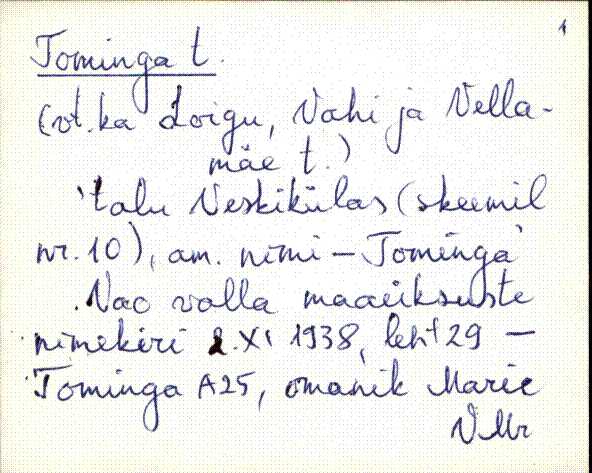 1
Tominga t.
(vt. ka Loigu, Vahi ja Vella-
mäe t.)
'talu Veskikülas (skeemil
nr. 10), am. nimi – Tominga'
Vao valla maaüksuste
nimekiri 2. XI 1938, leht 29 –
Tominga A25, omanik Marie
VMr